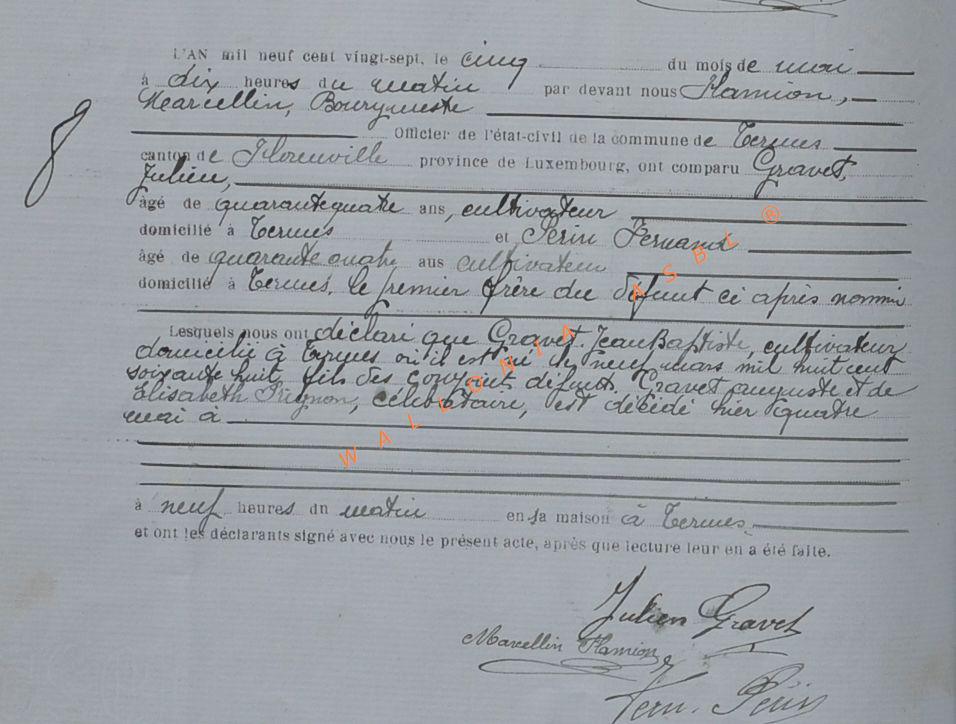 L'AN mil neuf cent vingt-sept, le cinq du mois de mai
à dix heures du matin par devant nous Hamion,
Marcellin, Bourgmestre
8
Officier de l'état-civil de la commune de Termes
canton de Florenville province de Luxembourg, ont comparu Gravet,
Julien,
âgé de quarante quatre ans, cultivateur
domicilié à Termes et Perin Fernand
âgé de quarante quatre ans cultivateur
domicilié à Termes, le premier frère du défunt ci après nommé
Lesquels nous ont déclaré que Gravet, Jean Baptiste, cultivateur
domicilié à Termes où il est né le neuf mars mil huit cent
soixante huit, fils des conjoints défunts Gravet Auguste et de
Elisabeth Trignon, célibataire, est décédé hier quatre
mai à
à neuf heures du matin en sa maison à Termes
et ont les déclarants signé avec nous le présent acte, après que lecture leur en a été faite.
Julien Gravet
Marcellin Hamion
Fern. Périn
WALLONIA ASBL @